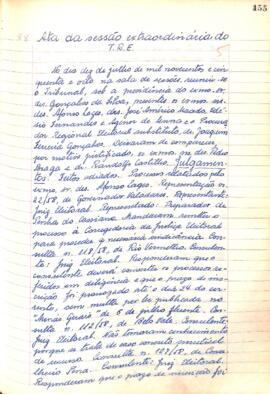 155
Ata da sessão extraordinária do
T.R.E.
No dia dez de julho de mil novecentos e cin-
quenta e oito na sala de sessões, reuniu-se
o Tribunal, sob a presidência do exmo. sr.
des. Gonçalves da Silva, presentes os exmos. srs.
des. Afonso Lages, drs. José Américo Macedo,
Fernandes e Agenor de Senna e o Procura-
dor Regional Eleitoral substituto, dr. Joaquim
Ferreira Gonçalves. Deixaram de comparecer,
por motivo justificado, os exmos. srs. des. Pedro
Braga e dr. Randolfo Castilho. Julgamen-
tos. Feitos adiados. Processos relatados pelo
exmo. sr. des. Afonso Lages. Representação n.
22/58, de Governador Valadares. Representante:
Juiz Eleitoral. Representado: Preparador de
Senha do Mandaram remeter o
processo à Corregedoria da Justiça Eleitoral
para proceder a necessária sindicância. Con-
sulta n. 118/58, de Rio Vermelho. Consulente:
Juiz Eleitoral. Responderam que o
consulente deverá converter os processos re-
feridos em diligência e que o prazo de ins-
crição foi prorrogado até o dia 24 do cor-
rente, sem multa, por lei publicada no
"Minas Gerais" de 5 de julho fluente. Con-
sulta n. 112/58, de Belo Vale. Consulente:
Juiz Eleitoral. Não tomaram conhecimento
porque se trata de caso concreto passível
de recurso. Consulta n. 127/58, de Cons.
Pena. Consulente: Juiz Eleitoral.
Responderam que o prazo de inscrição foi